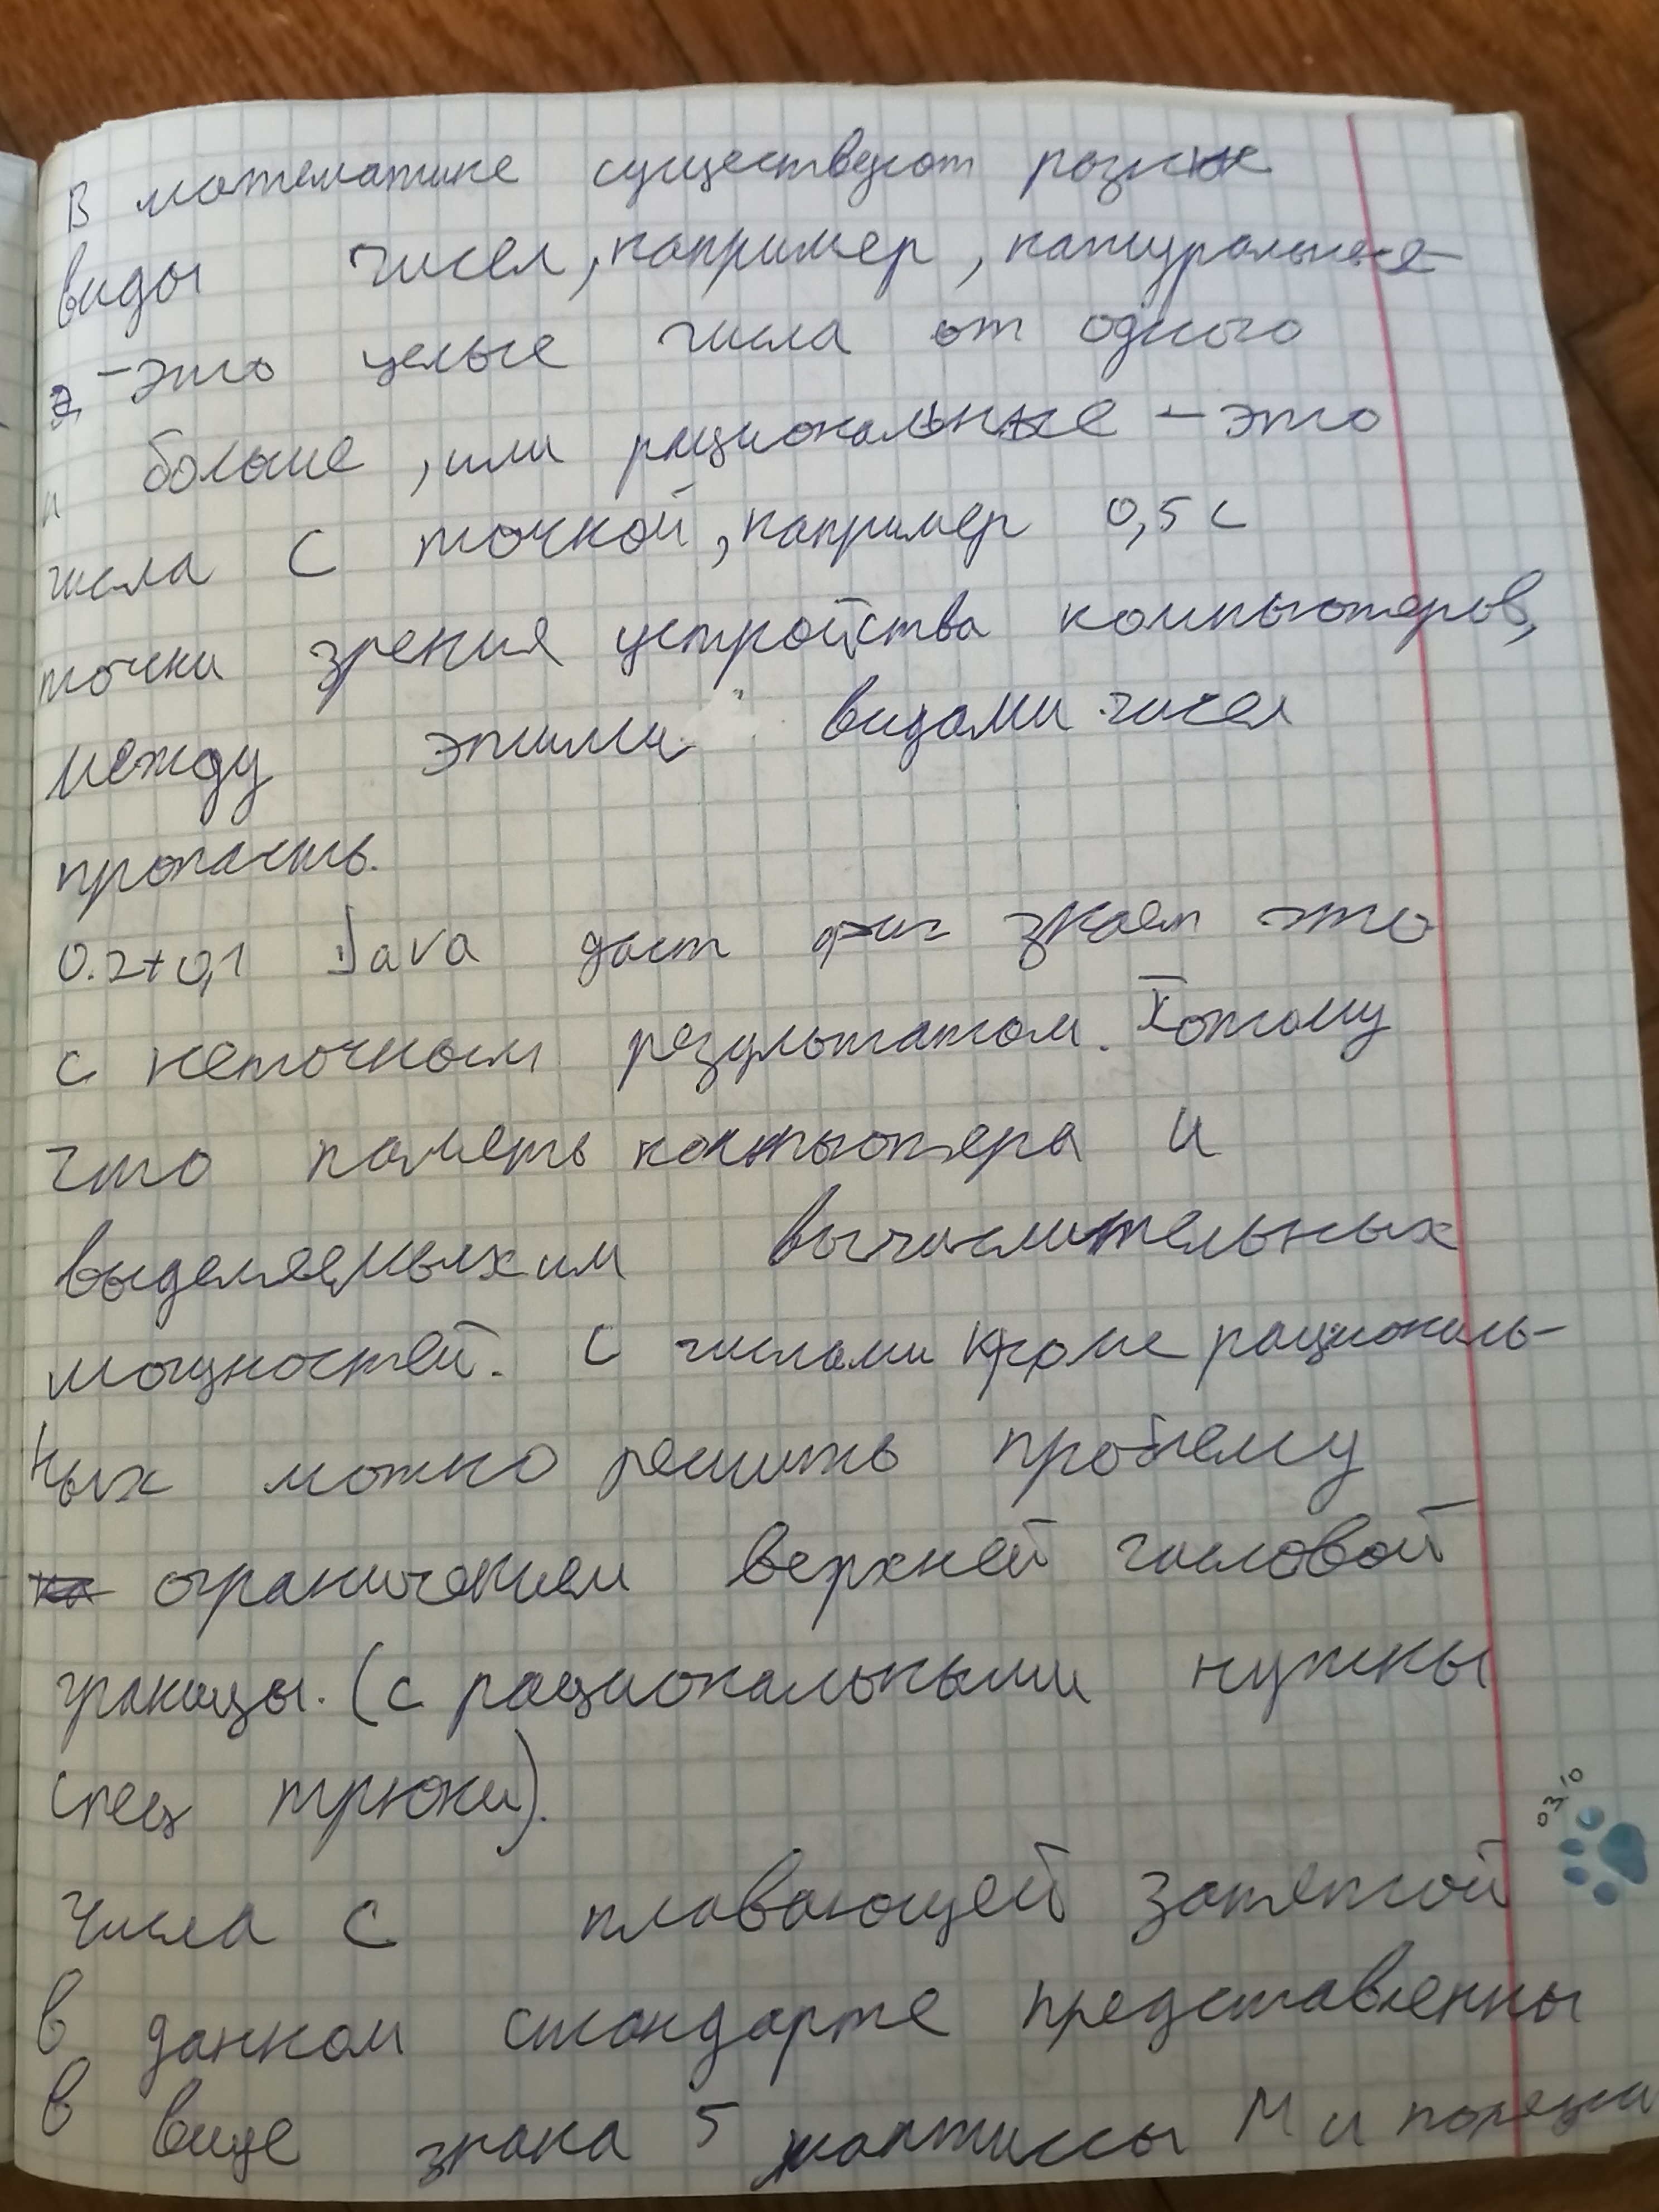 В математике существуют разные
виды чисел, например, натуральные
- это целые числа от одного
и больше, или рациональные - это
числа с точкой, например 0,5 с
точки зрения устройства компьютеров,
между этими видами чисел
пропасть.
0.2+0,1 Java даст знаем это
с неточным результатом. Потому
что память компьютера и
выделяемых им вычислительных
мощностей. С числами кроме рациональ-
ных можно решить проблему
ограничением верхней числовой
границы. (с рациональными нужны
спец трюки).
Числа с плавающей запятой
в данном стандарте представленны
в виде знака S мантиссы M и
озно